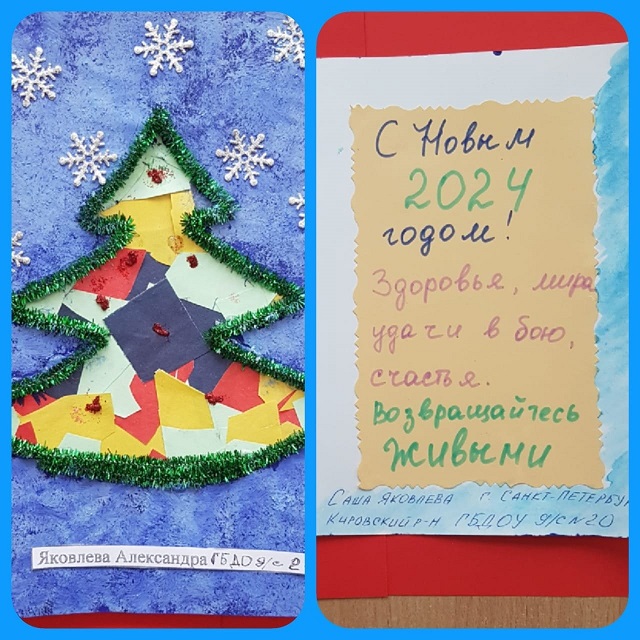 Яковлева Александра ГБДОУ я/с 2
С Новым
2024
годом!
Здоровья, мира
удачи в бою,
счастья.
Возвращайтесь
живыми
Саша Яковлева г. Санкт-Петербур
Кировский р-н ГБДОУ я/с №20